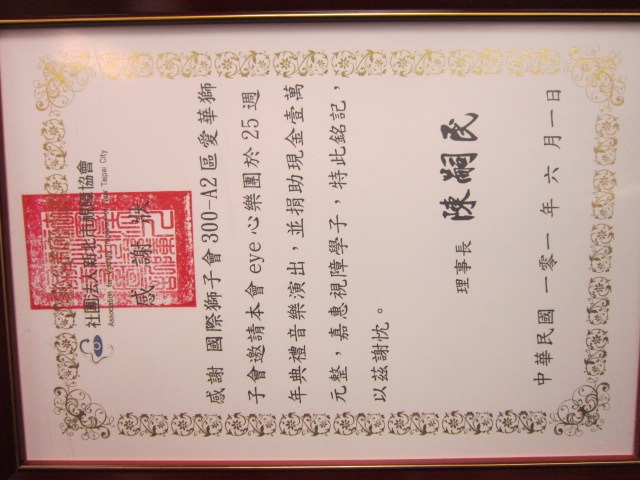 社團法人新北市視障協會
感謝狀
感謝 國際獅子會300-A2區愛華獅
子會邀請本會eye心樂團於25週
年典禮音樂演出，並捐助現金壹萬
元整，嘉惠視障學子，特此銘記，
以茲謝忱。
理事長 陳嗣民
中華民國一零一年六月一日